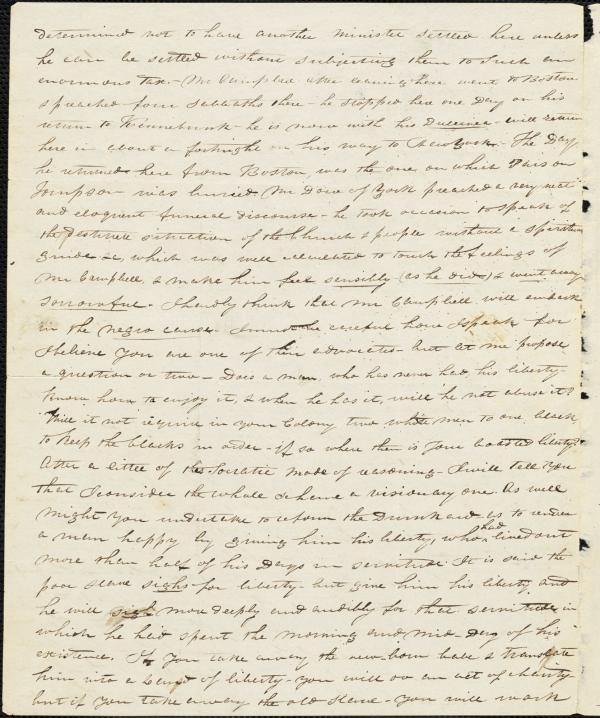 determined not to have another minister settled here unless
he can be settled without subjecting them to such an
enormous tax - Mr Campbell after coming here went to Boston
& preached four sabbaths there - he stopped here one day on his
return to Kennebunk - he is now with his Dulcinea - will return
here in about a fortnight on his way to New York. The Day
he returned here from Boston, was the one on which Parson
Thompson was buried Mr Dow of York preached a very neat
and eloquent funeral discourse - he took occasion to speak of
the destitute situation of the Church & people without a spiritual
guide &c, which was well calculated to touch the feelings of
Mr Campbell, & make him feel sensibly (as he did) & went away
sorrowful - I hardly think that Mr Campbell will embark
in the negro cause. I must be careful how I speak for
I believe you are one of their advocates - but let me propose
a question or two - Does a man, who has never had his liberty -
know how to enjoy it, & when he has it, will he not abuse it?
Will it not require in your Colony two white men to one black
to keep the blacks in order - if so where then is your boasted liberty?
After a little of the Socratic mode of reasoning - I will tell you
that I consider the whole scheme a visionary one. As well
might you undertake to reform the Drunkard as to render
a man happy by giving him his liberty, who had lived out
more than half of his days in servitude. It is said the
poor slave sighs for liberty - but give him his liberty and
he will sigh more deeply and audibly for that servitude in
which he had spent the morning and mid-day of his
existence. If you take away the new-born babe & translate
him into a land of liberty - you will do an act of charity
but if you take away the old slave - you will work